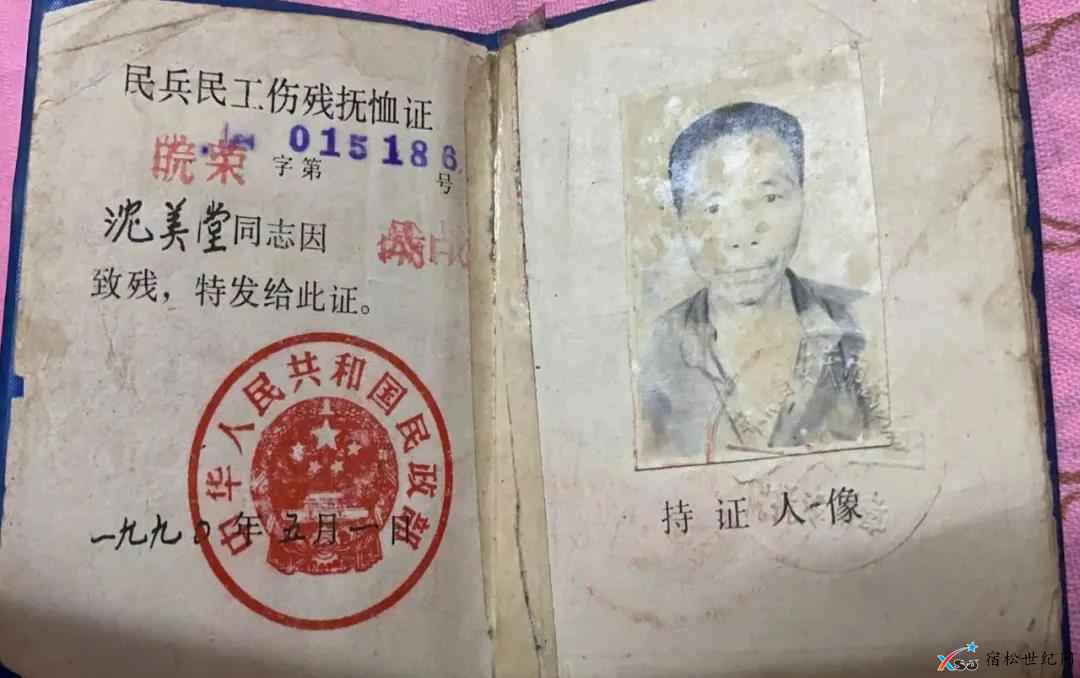 民兵民工伤残抚恤证
皖荣 字第 015186 号
沈美堂同志因
致残，特发给此证。
中华人民共和国民政部
一九九〇年五月一日
持证人像
XSSJ 宿松世纪网